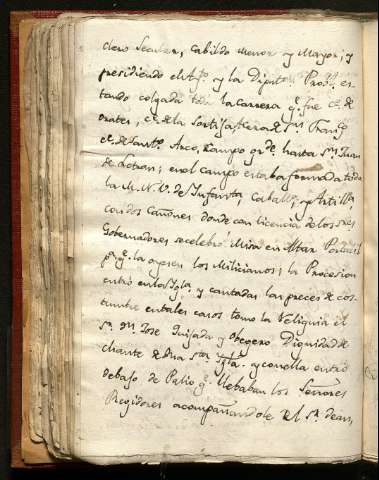 clero Secular, Cabildo menor y Mayor, y
presidiendo el Ay.º y la Diput.ⁿ Prov.ˡ es-
tando colgada toda la carrera q.ᵉ fue c.ᵉ de
orates, c.ᵉ de la Sortija, Acera de S.ⁿ Franc.º
c.ᵉ de Sant.º Arco, Campo gr.ᵈᵉ hasta S.ⁿ Juan
de Letran; en el campo estaba formada toda
la M. N. V. de Infanta, Caball.ª y Artill.ª
con dos Cañones donde con licencia de los s.ʳᵉˢ
Gobernadores se celebró Misa en Altar Portatil
p.ª q.ᵉ la oyesen los Milicianos; la Procesion
entró en la Igl.ª y cantadas las preces de cos-
tumbre en tales casos tomó la Reliquia el
S.ʳ D.ⁿ Jose Quijada y Dignidad de
chantre de dha S.ᵗᵃ Igl.ª y con ella entró
debajo de Palio q.ᵉ llebaban los Señores
Regidores acompañandole el S.ʳ dean,